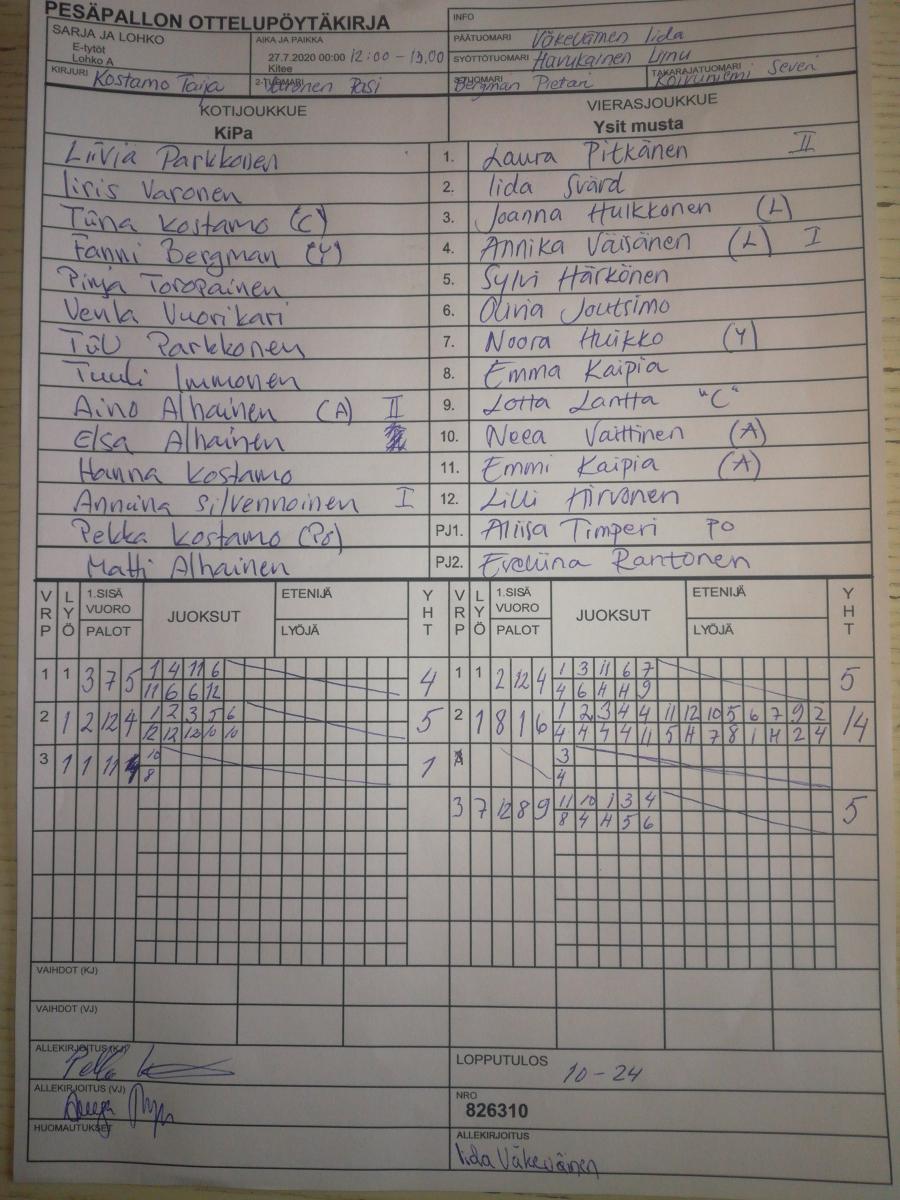 PESÄPALLON OTTELUPÖYTÄKIRJA
INFO
SARJA JA LOHKO
E-tytöt
Lohko A
AIKA JA PAIKKA
27.7.2020 00:00 12:00 - 13.00
Kitee
PÄÄTUOMARI Väkeväinen Iida
SYÖTTÖTUOMARI Havukainen Linu
KIRJURI Kostamo Taija
2-TUOMARI Varonen Pasi
3-TUOMARI Bergman Pietari
TAKARAJATUOMARI Koivuniemi Severi
KOTIJOUKKUE
KiPa
VIERASJOUKKUE
Ysit musta
Liivia Parkkonen 1. Laura Pitkänen II
Iiris Varonen 2. Iida Svärd
Tiina Kostamo (C) 3. Joanna Hulkkonen (L)
Fanni Bergman (Y) 4. Annika Väisänen (L) I
Pinja Toropainen 5. Sylvi Härkönen
Venla Vuorikari 6. Olivia Joutsimo
Tiiu Parkkonen 7. Noora Huikko (Y)
Tuuli Immonen 8. Emma Kaipia
Aino Alhainen (A) II 9. Lotta Lantta "C"
Elsa Alhainen 10. Neea Vaittinen (A)
Hanna Kostamo 11. Emmi Kaipia (A)
Anniina Silvennoinen I 12. Lilli Hirvonen
Pekka Kostamo (Po) PJ1. Aliisa Timperi PO
Matti Alhainen PJ2. Eveliina Rantonen
VRP LYÖ 1.SISÄ VUORO PALOT JUOKSUT ETENIJÄ LYÖJÄ YHT
VRP LYÖ 1.SISÄ VUORO PALOT JUOKSUT ETENIJÄ LYÖJÄ YHT
1 1 3 7 5 1 4 11 6 4
11 6 6 12
1 1 2 12 4 1 3 11 6 7 5
4 6 4 4 9
2 1 2 12 4 1 2 3 5 6 5
12 12 12 10 10
2 1 8 1 6 1 2 3 4 4 11 12 10 5 6 7 9 2 14
4 4 4 4 11 5 4 7 8 1 4 2 4
3 1 1 11 4 10 1
8
3
4
3 7 12 8 9 11 10 1 3 4 5
8 4 4 5 6
VAIHDOT (KJ)
VAIHDOT (VJ)
ALLEKIRJOITUS (KJ)
ALLEKIRJOITUS (VJ)
HUOMAUTUKSET
LOPPUTULOS 10-24
NRO
826310
ALLEKIRJOITUS
Iida Väkeväinen